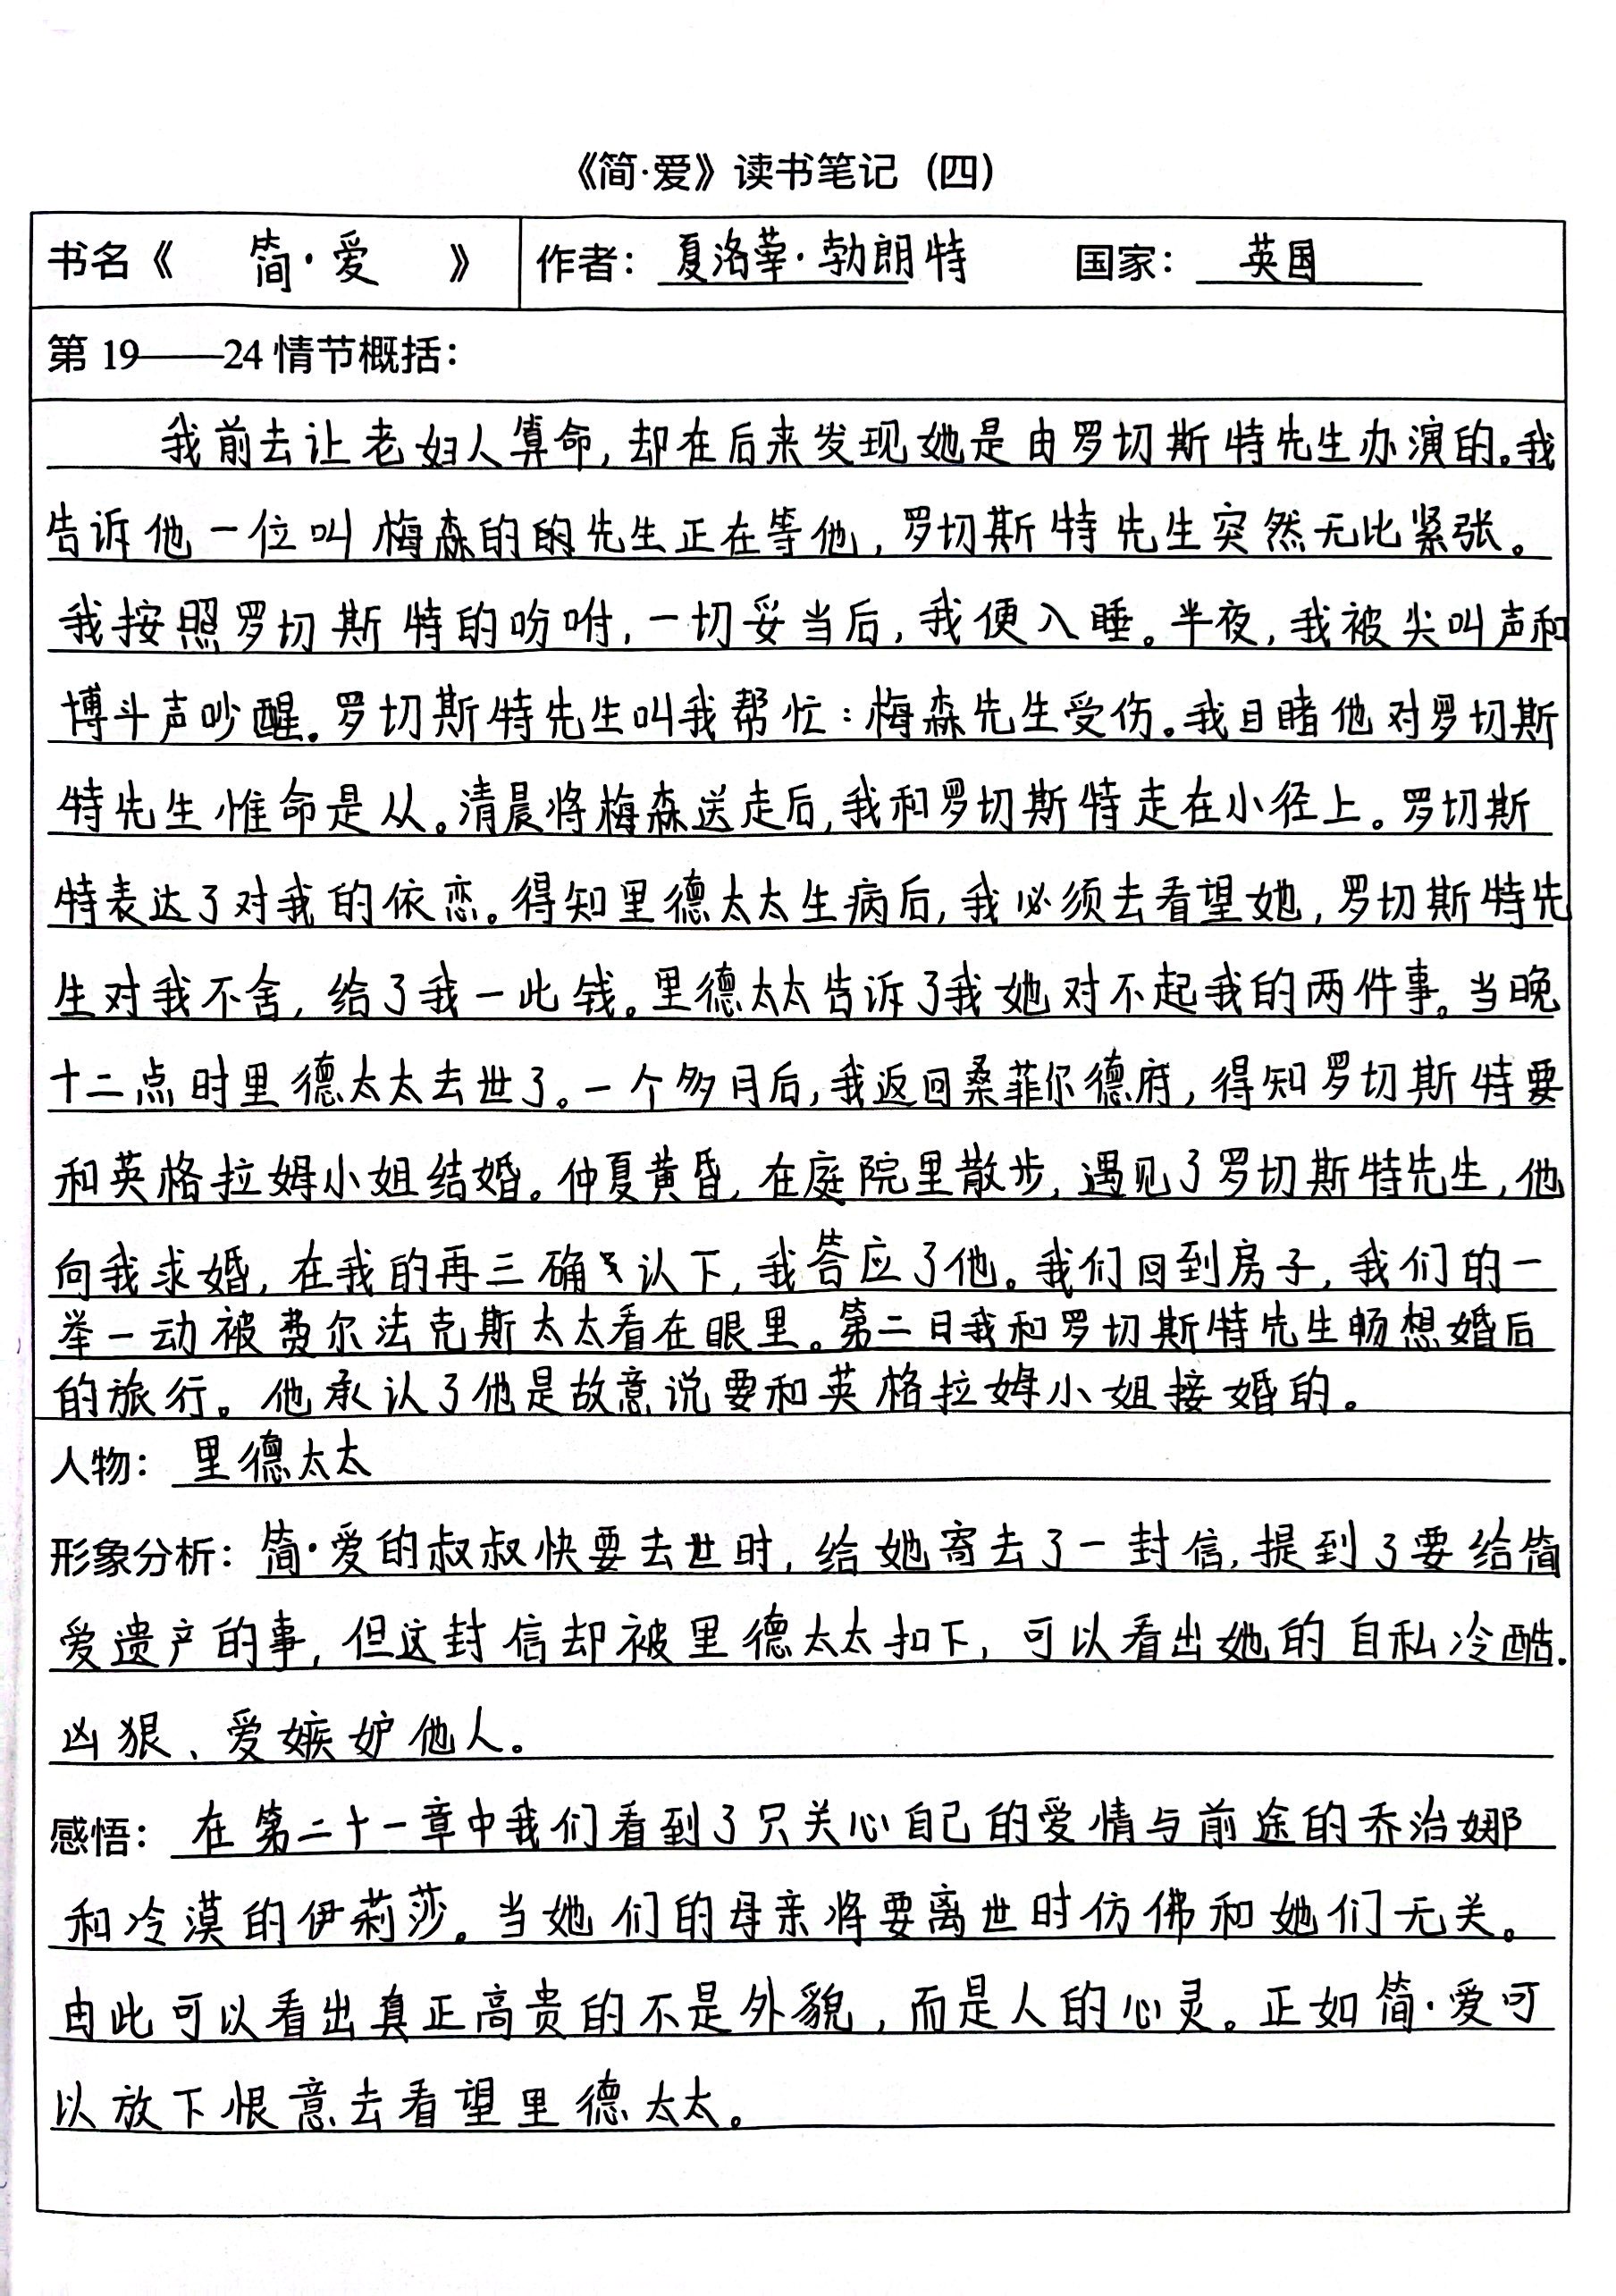 《简·爱》读书笔记（四）
书名《 简·爱 》 作者：夏洛蒂·勃朗特 国家：英国
第 19——24 情节概括：
我前去让老妇人算命，却在后来发现她是由罗切斯特先生办演的。我
告诉他一位叫梅森的的先生正在等他，罗切斯特先生突然无比紧张。
我按照罗切斯特的吩咐，一切妥当后，我便入睡。半夜，我被尖叫声和
博斗声吵醒。罗切斯特先生叫我帮忙：梅森先生受伤。我目睹他对罗切斯
特先生惟命是从。清晨将梅森送走后，我和罗切斯特走在小径上。罗切斯
特表达了对我的依恋。得知里德太太生病后，我必须去看望她，罗切斯特先
生对我不舍，给了我一此钱。里德太太告诉了我她对不起我的两件事。当晚
十二点时里德太太去世了。一个多月后，我返回桑菲尔德府，得知罗切斯特要
和英格拉姆小姐结婚。仲夏黄昏，在庭院里散步，遇见了罗切斯特先生，他
向我求婚，在我的再三确认下，我答应了他。我们回到房子，我们的一
举一动被费尔法克斯太太看在眼里。第二日我和罗切斯特先生畅想婚后
的旅行。他承认了他是故意说要和英格拉姆小姐接婚的。
人物：里德太太
形象分析：简·爱的叔叔快要去世时，给她寄去了一封信，提到了要给简
爱遗产的事，但这封信却被里德太太扣下，可以看出她的自私冷酷.
凶狠、爱嫉妒他人。
感悟：在第二十一章中我们看到了只关心自己的爱情与前途的乔治娜
和冷漠的伊莉莎。当她们的母亲将要离世时仿佛和她们无关。
由此可以看出真正高贵的不是外貌，而是人的心灵。正如简·爱可
以放下恨意去看望里德太太。